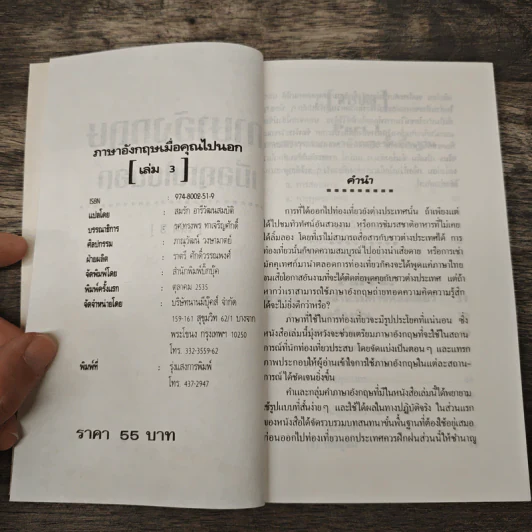 ภาษาอังกฤษเมื่อคุณไปนอก
[ เล่ม 3 ]
ISBN 974-8002-51-9
แปลโดย : สมรัก อารีวัฒนสมบัติ
บรรณาธิการ : รศ.ทรงพร ทาเจริญศักดิ์
ศิลปกรรม : ภาณุวัฒน์ วงษามาตย์
ฝ่ายผลิต : ราตรี ศักดิ์วรรณพงศ์
จัดพิมพ์โดย : สำนักพิมพ์บีกบุ๊ค
พิมพ์ครั้งแรก : ตุลาคม 2535
จัดจำหน่ายโดย : บริษัทนานมีบุ๊คส์ จำกัด
159-161 สุขุมวิท 62/1 บางจาก
พระโขนง กรุงเทพฯ 10250
โทร. 332-3559-62
พิมพ์ที่ : รุ่งแสงการพิมพ์
โทร. 437-2947
ราคา 55 บาท
คำนำ
การที่ได้ออกไปท่องเที่ยวยังต่างประเทศนั้น ถ้าเพียงแต่
ได้ไปชมทิวทัศน์อันสวยงาม หรือการชิมรสชาติอาหารที่ไม่เคย
ได้ลิ้มลอง โดยที่เราไม่สามารถสื่อสารกับชาวต่างประเทศได้ การ
ท่องเที่ยวนั้นก็ขาดความสมบูรณ์ไปอย่างน่าเสียดาย หรือการเช่า
มัคคุเทศก์มานำตลอดการท่องเที่ยวก็คงจะได้พูดแต่ภาษาไทย
จนเสียโอกาสอันงามที่จะได้ติดต่อพูดคุยกับชาวต่างประเทศ แต่ถ้า
หากว่าเราสามารถใช้ภาษาอังกฤษถ่ายทอดความคิดความรู้สึก
ได้จะไม่ยิ่งดีกว่าหรือ?
ภาษาที่ใช้ในการท่องเที่ยวจะมีรูปประโยคที่แน่นอน ซึ่ง
หนังสือเล่มนี้มุ่งหวังจะช่วยเตรียมภาษาอังกฤษที่จะใช้ในสถาน
การณ์ที่นักท่องเที่ยวประสบ โดยจัดแบ่งเป็นตอนๆ และแทรก
ภาพประกอบให้ผู้อ่านเข้าใจการใช้ภาษาอังกฤษในแต่ละสถาน-
การณ์ได้ชัดเจนยิ่งขึ้น
คำและกลุ่มคำภาษาอังกฤษที่มีในหนังสือเล่มนี้ได้พยายาม
ใช้รูปแบบที่สั้นง่ายๆ และใช้ได้ผลในทางปฏิบัติจริง ในส่วนแรก
ของหนังสือได้จัดรวบรวมบทสนทนาขั้นพื้นฐานที่ต้องใช้อยู่เสมอ
ก่อนออกไปท่องเที่ยวนอกประเทศควรฝึกฝนส่วนนี้ให้ชำนาญ